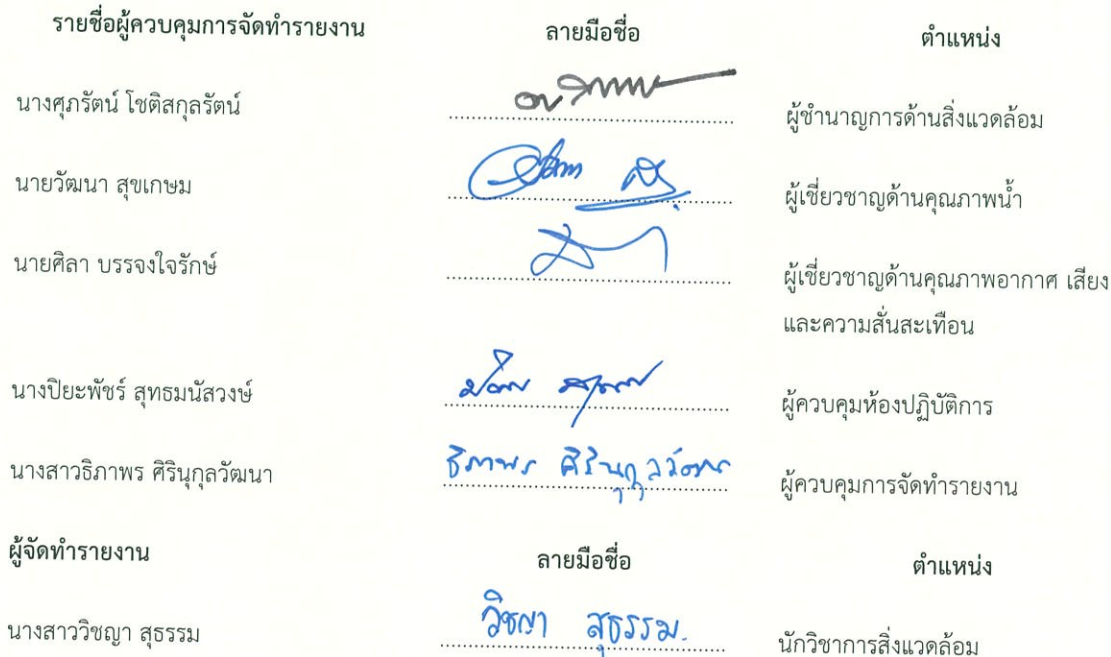 รายชื่อผู้ควบคุมการจัดทำรายงาน ลายมือชื่อ ตำแหน่ง
นางศุภรัตน์ โชติสกุลรัตน์ ผู้ชำนาญการด้านสิ่งแวดล้อม
นายวัฒนา สุขเกษม ผู้เชี่ยวชาญด้านคุณภาพน้ำ
นายศิลา บรรจงใจรักษ์ ผู้เชี่ยวชาญด้านคุณภาพอากาศ เสียง
และความสั่นสะเทือน
นางปิยะพัชร์ สุทธมนัสวงษ์ ผู้ควบคุมห้องปฏิบัติการ
นางสาวธิภาพร ศิรินุกุลวัฒนา ธิภาพร ศิรินุกุลวัฒนา ผู้ควบคุมการจัดทำรายงาน
ผู้จัดทำรายงาน ลายมือชื่อ ตำแหน่ง
นางสาววิชญา สุธรรม วิชญา สุธรรม นักวิชาการสิ่งแวดล้อม